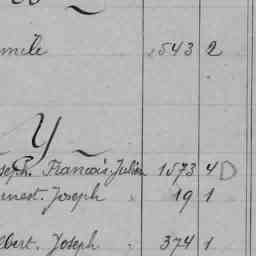 mile 543 2
Y
seph. François. Julien 1573 4 D
rnest. Joseph " 19 1
lbert. Joseph " 374 1